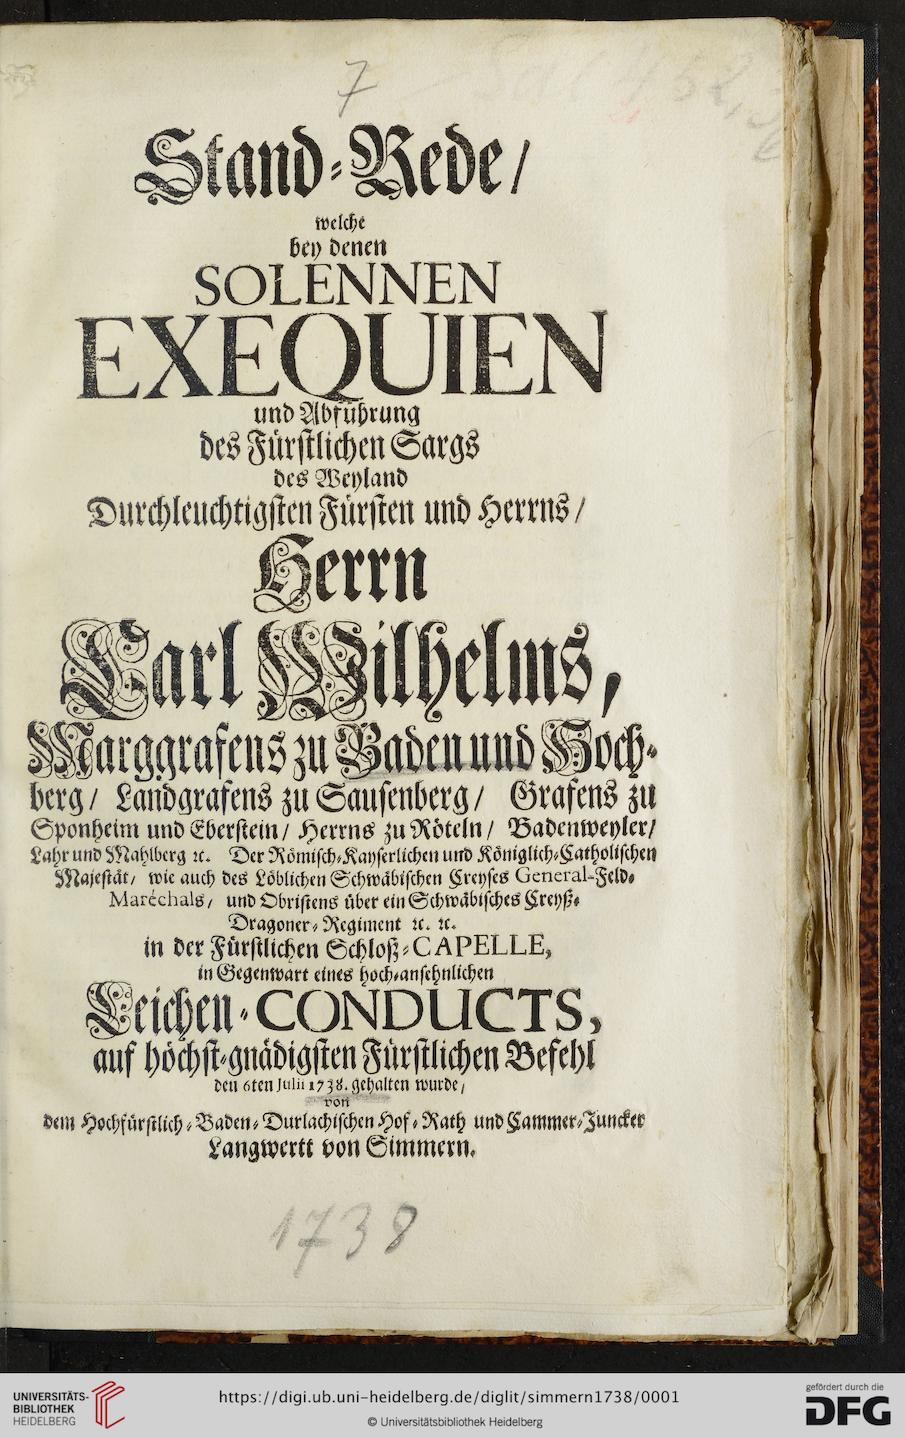 7
Stand-Rede/
welche
bey denen
SOLENNEN
EXEQUIEN
und Abführung
des Fürstlichen Sargs
des Weyland
Durchleuchtigsten Fürsten und Herrns/
Herrn
Carl Wilhelms,
Marggrafens zu Baden und Hoch-
berg/ Landgrafens zu Sausenberg/ Grafens zu
Sponheim und Eberstein/ Herrns zu Röteln/ Badenweyler/
Lahr und Mahlberg ꝛc. Der Römisch-Kayserlichen und Königlich-Catholischen
Majestät/ wie auch des Löblichen Schwäbischen Creyses General-Feld-
Maréchals/ und Obristens über ein Schwäbisches Creyß-
Dragoner-Regiment ꝛc. ꝛc.
in der Fürstlichen Schloß-CAPELLE,
in Gegenwart eines hoch-ansehnlichen
Leichen-CONDUCTS,
auf höchst-gnädigsten Fürstlichen Befehl
den 6ten Julii 1738. gehalten wurde/
von
dem Hochfürstlich-Baden-Durlachischen Hof-Rath und Cammer-Juncker
Langwertt von Simmern.
1738
UNIVERSITÄTS-
BIBLIOTHEK
HEIDELBERG
https://digi.ub.uni-heidelberg.de/diglit/simmern1738/0001
© Universitätsbibliothek Heidelberg
gefördert durch die
DFG